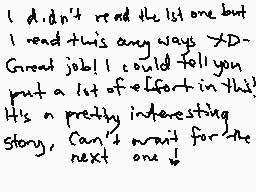 I didn't read the 1st one but
I read this any ways XD-
Great job! I could tell you
put a lot of effort in this!
It's a pretty interesting
story, Can't wait for the
next one !